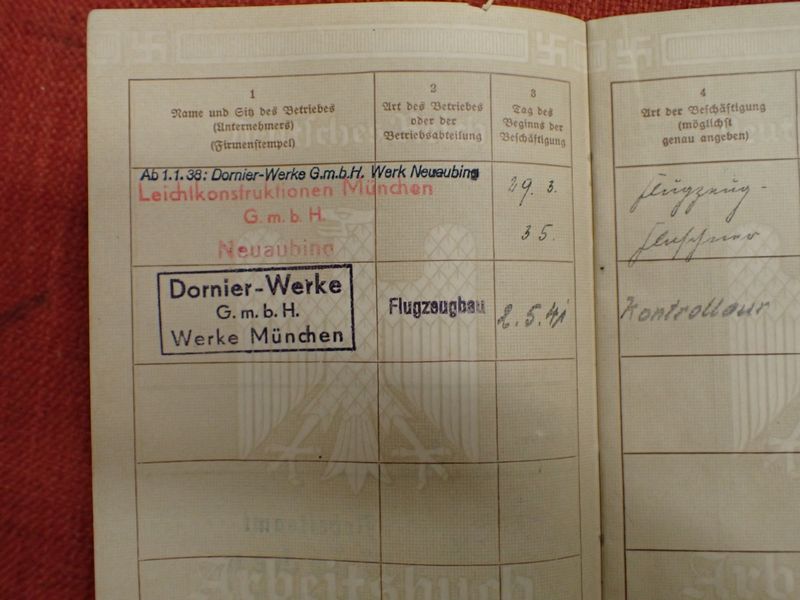 1
Name und Sitz des Betriebes
(Unternehmers)
(Firmenstempel)
2
Art des Betriebes
oder der
Betriebsabteilung
3
Tag des
Beginns der
Beschäftigung
4
Art der Beschäftigung
(möglichst
genau angeben)
Ab 1.1.38: Dornier-Werke G.m.b.H. Werk Neuaubing
Leichtkonstruktionen München
G. m. b. H.
Neuaubing
29. 3.
35.
Flugzeug-
Dornier-Werke
G. m. b. H.
Werke München
Flugzeugbau
2.5.41
Kontrolleur
Arbeitsbuch